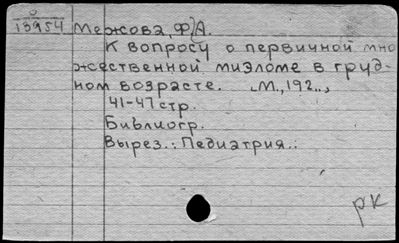 13954 Межова, Ф.А.
К вопросу о первичной мно
жественной миэломе в груд-
ном возрасте. М., 192..,
41-47 стр.
Библиогр.
Вырез.: Педиатрия.:
рк